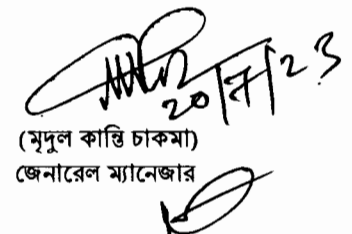 20/7/23
(মৃদুল কান্তি চাকমা)
জেনারেল ম্যানেজার